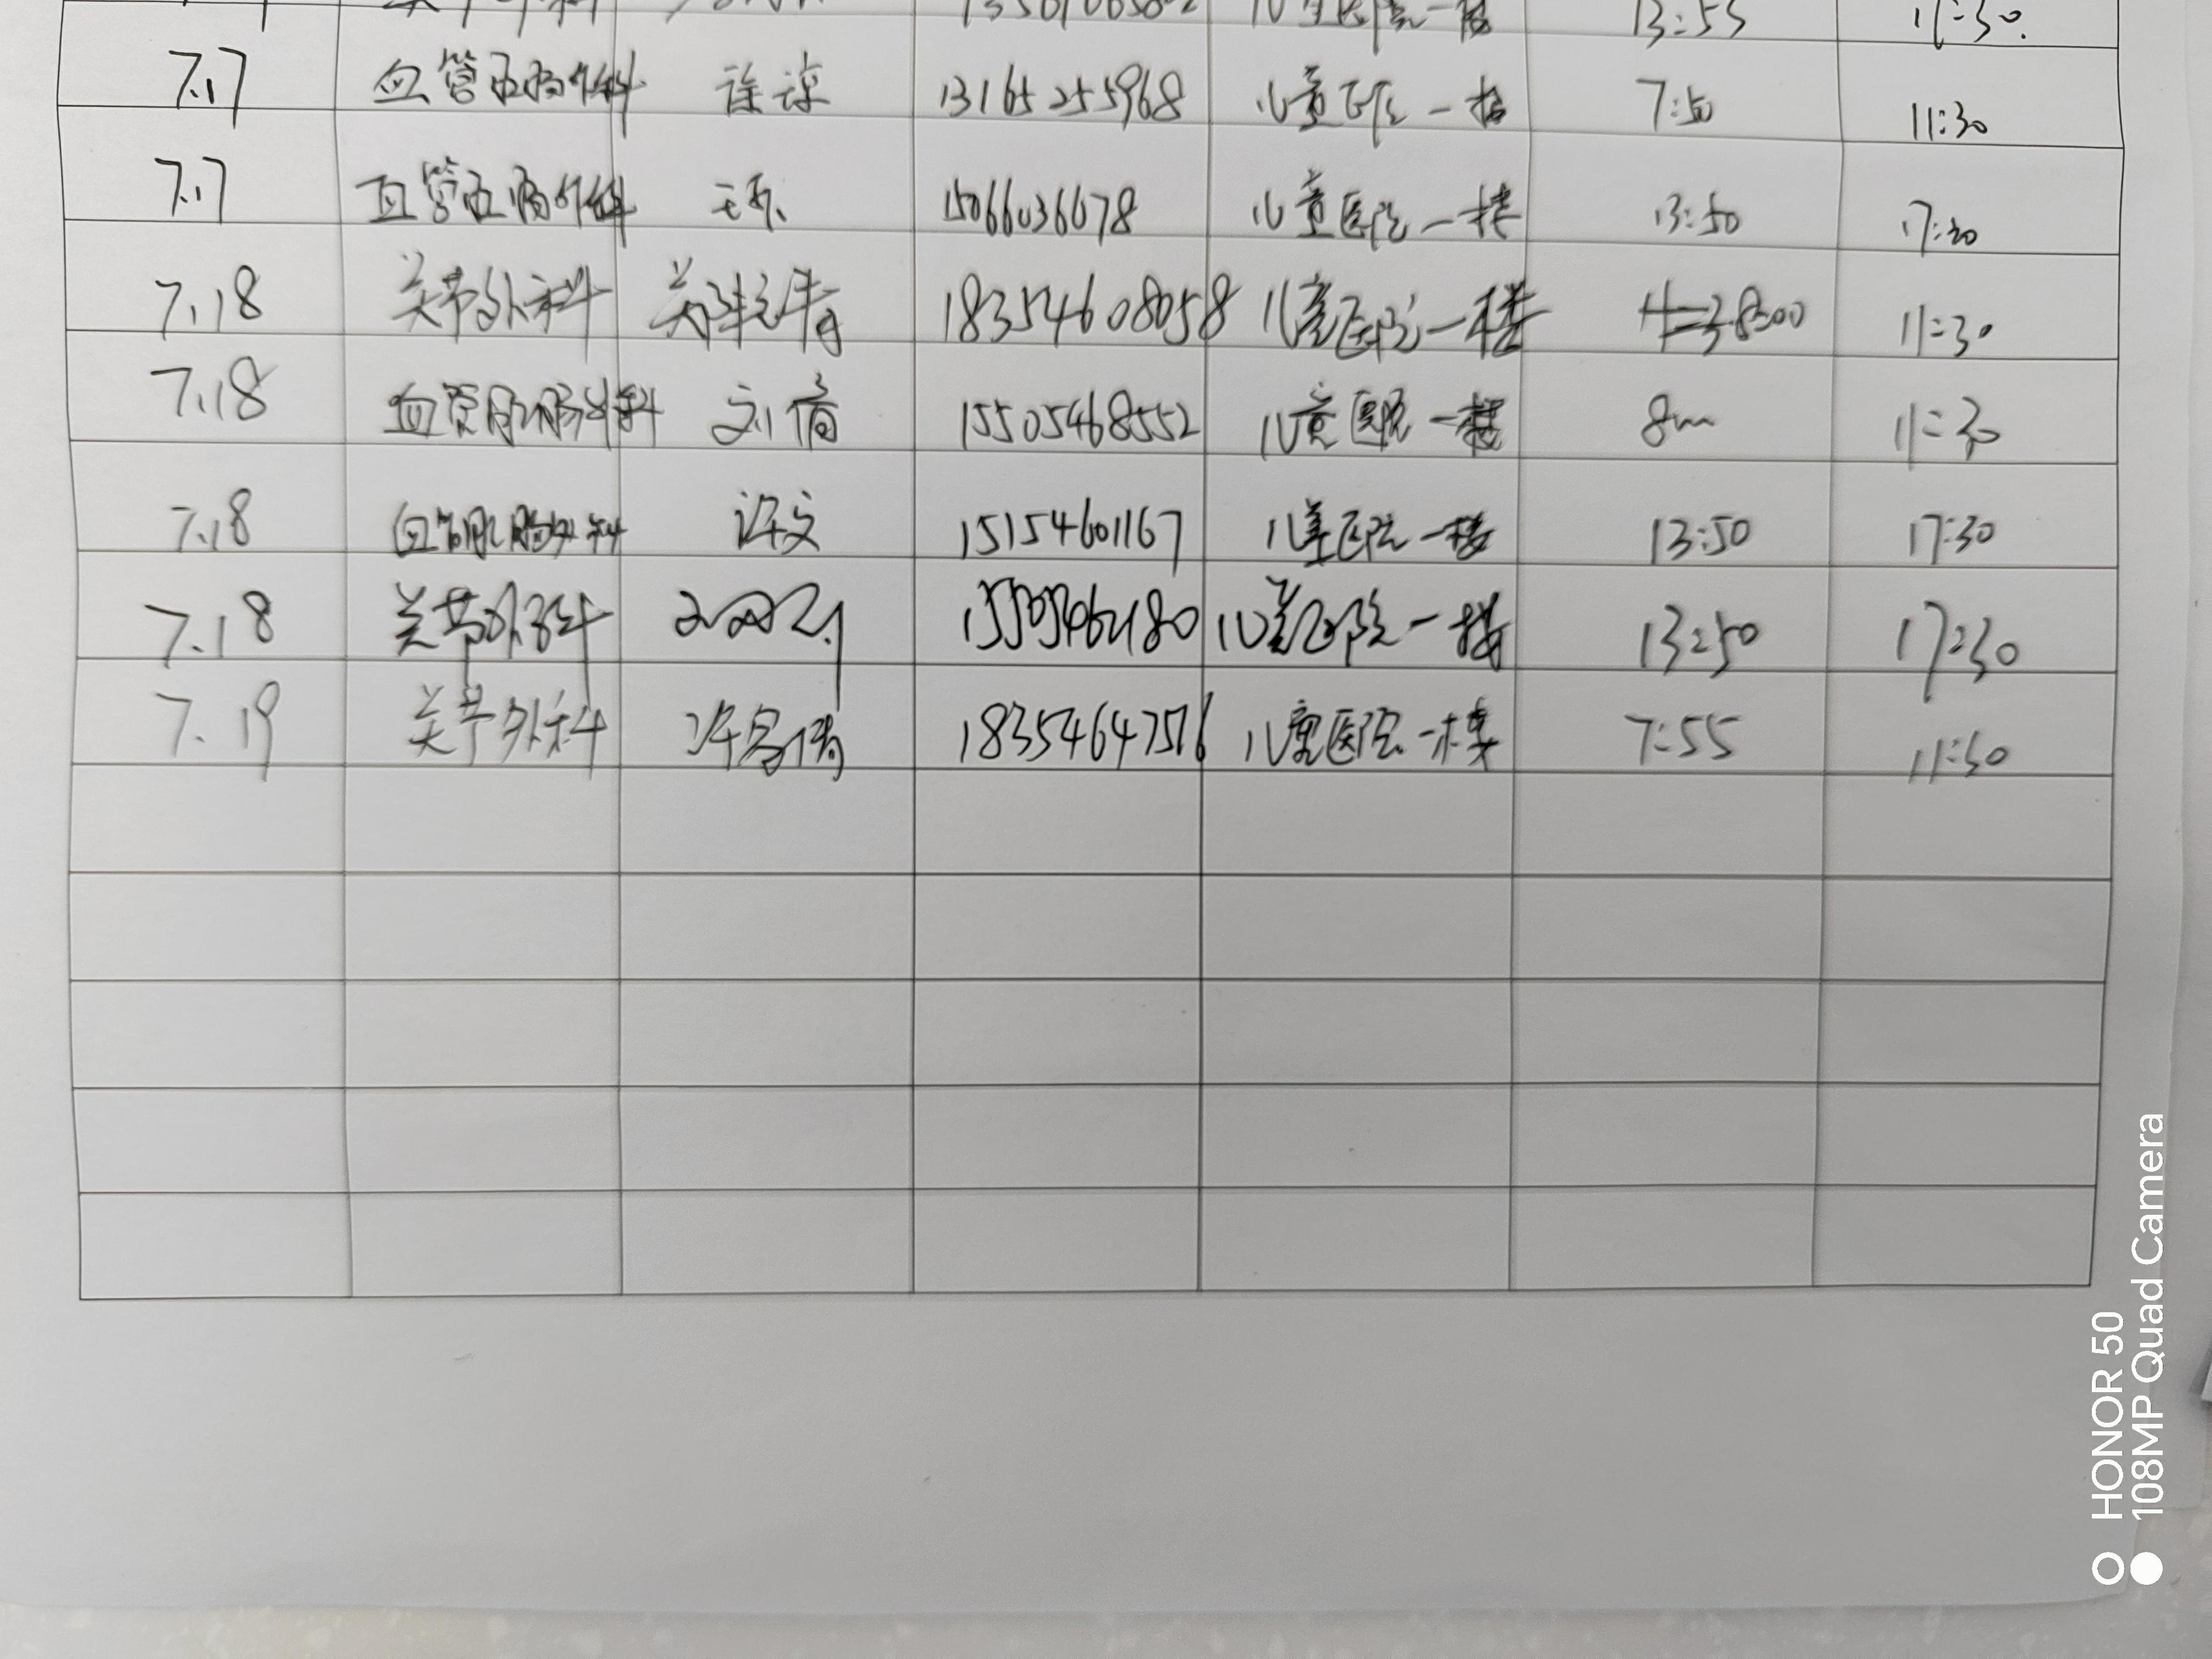 13:55 11:30.
7.17 血管 外科 徐 13165255968 儿童医院一楼 7:50 11:30
7.17 血管 外科 王 15066036678 儿童医院一楼 13:50 17:30
7.18 关节外科 18354608058 儿童医院一楼 8:00 11:30
7.18 血管 外科 刘倩 15505468552 儿童医院一楼 8 11:30
7.18 血管 外科 许文 15154601167 儿童医院一楼 13:50 17:30
7.18 关节外科 儿童医院一楼 13:50 17:30
7.19 关节外科 许 倩 18354647576 儿童医院一楼 7:55 11:30
HONOR 50
108MP Quad Camera